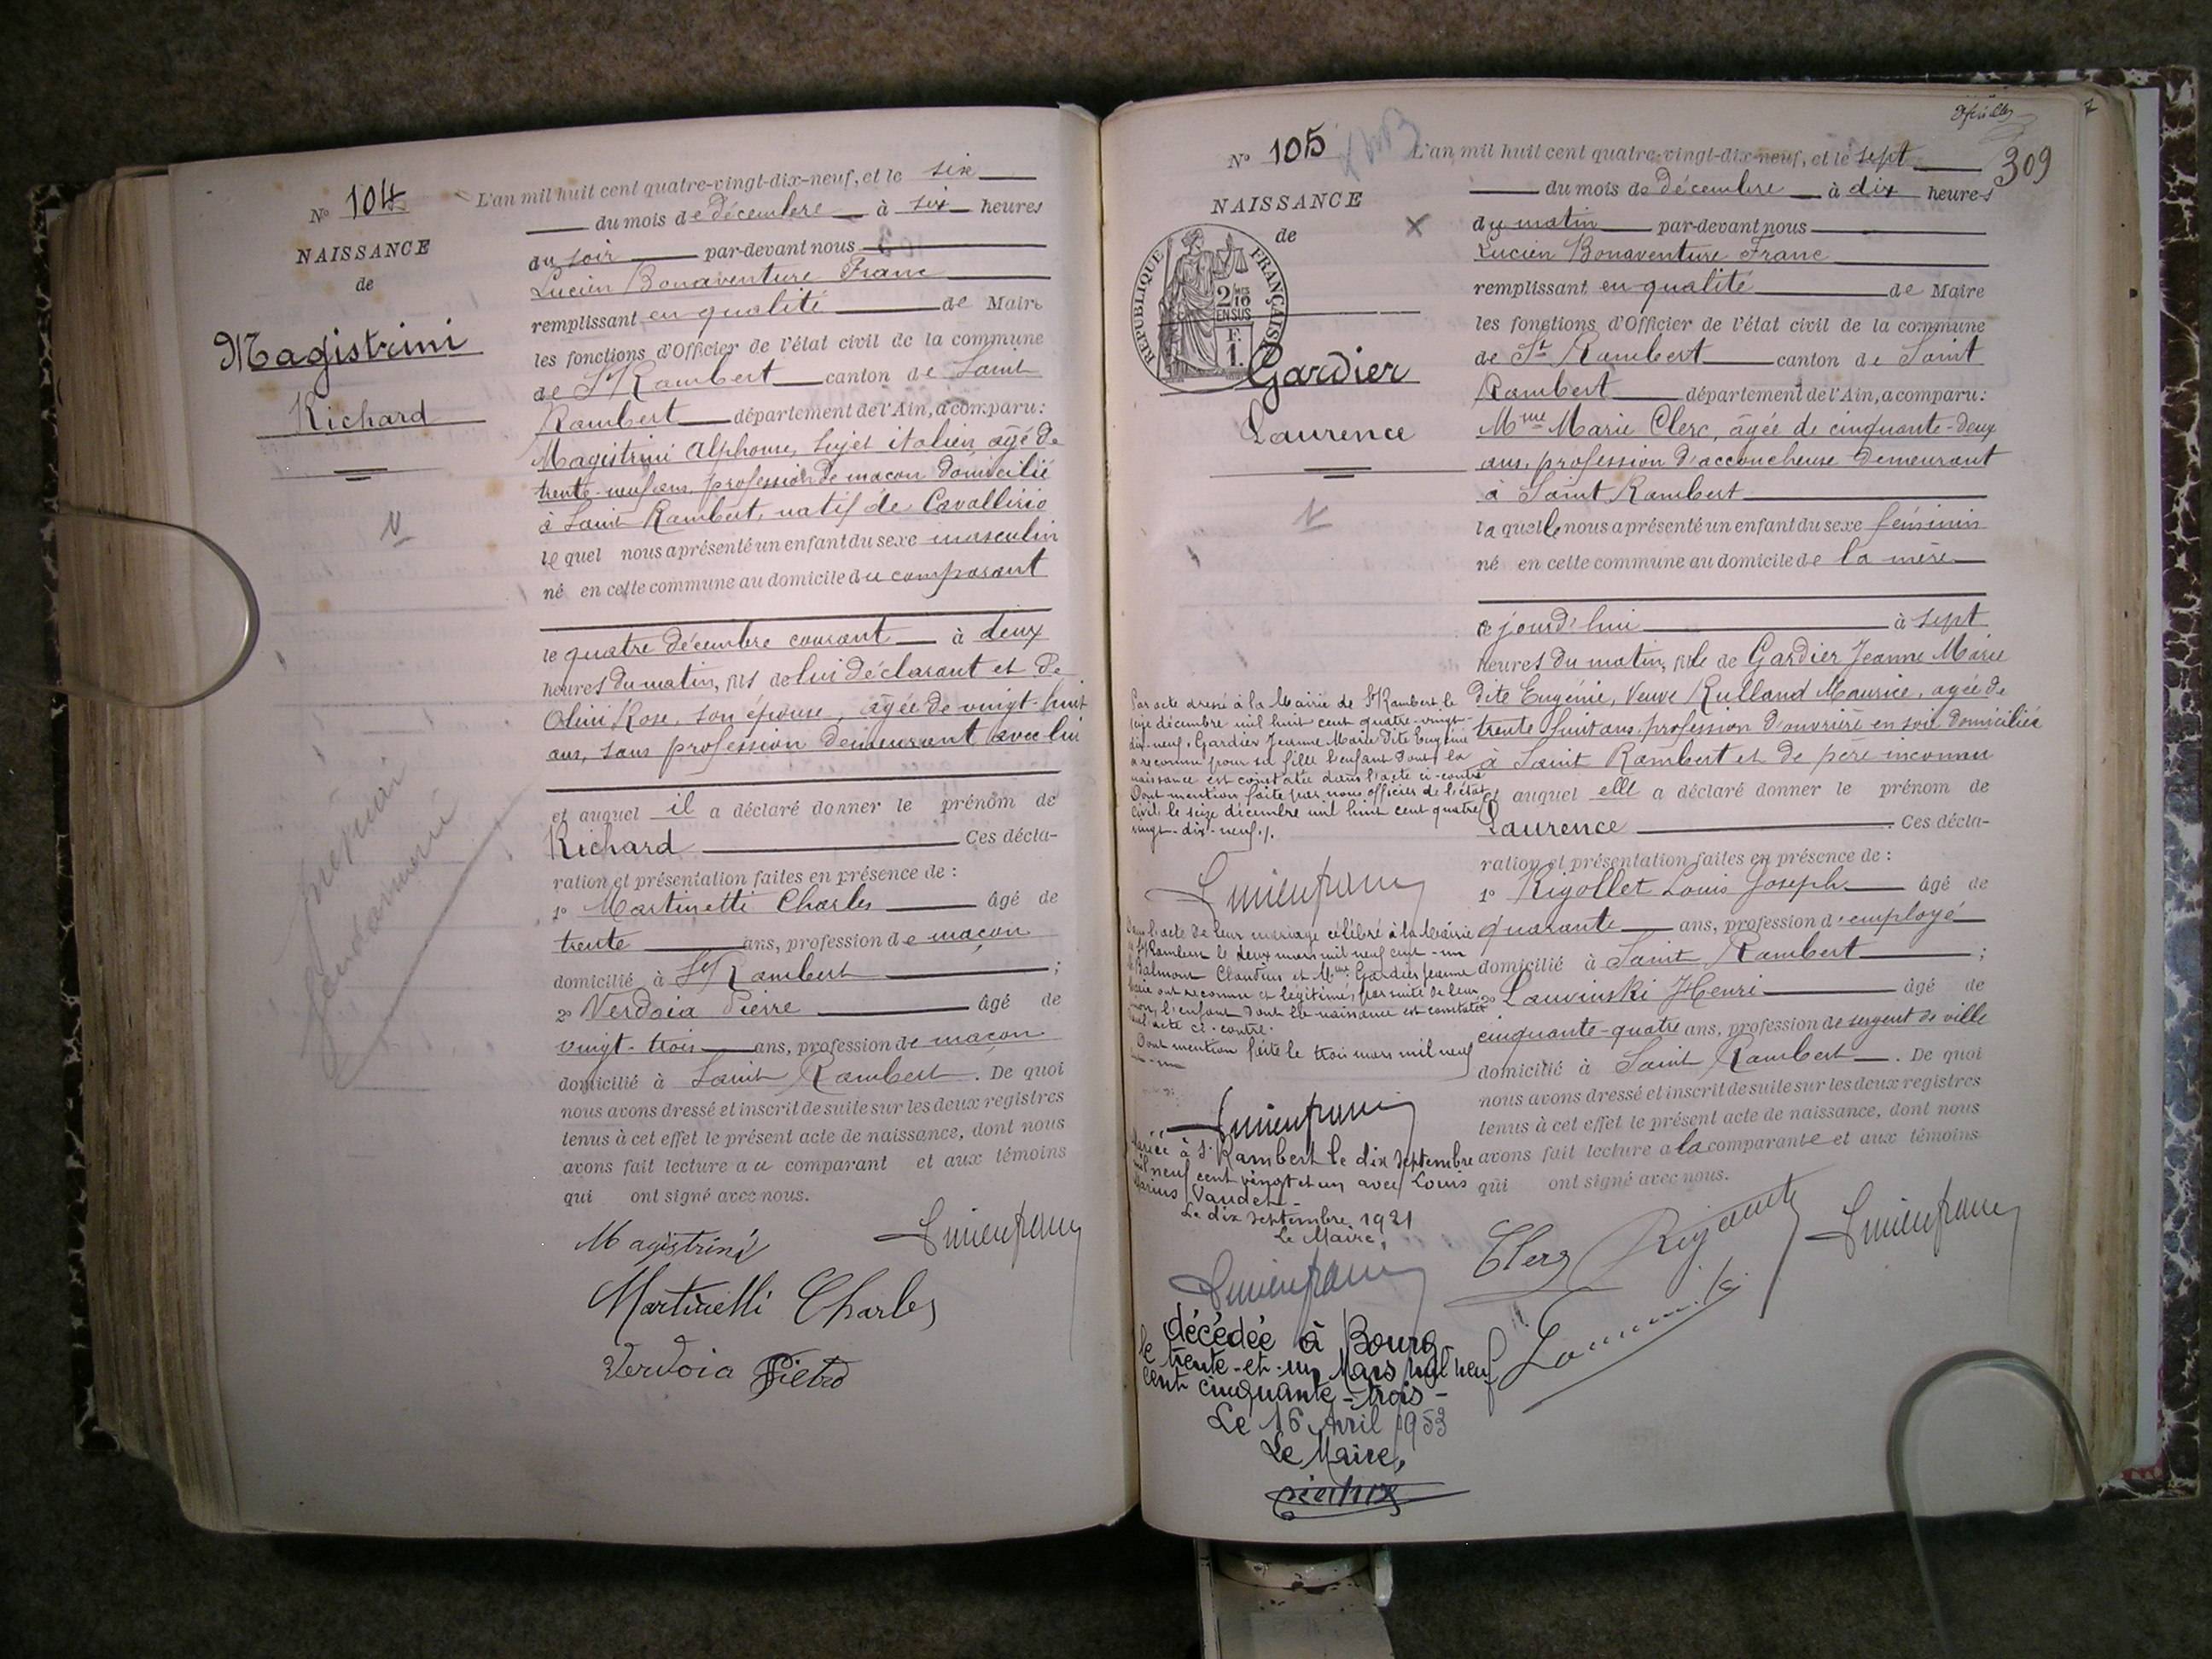 N° 104
NAISSANCE
de
Magistrini
Richard
V
L'an mil huit cent quatre-vingt-dix-neuf, et le six
du mois de décembre à six heures
du soir par-devant nous
Lucien Bonaventure Franc
remplissant en qualité de Maire
les fonctions d'Officier de l'état civil de la commune
de St Rambert canton de Saint
Rambert département de l'Ain, a comparu:
Magistrini Alphonse, sujet italien, âgé de
trente-neuf ans, profession de maçon domicilié
à Saint Rambert, natif de Cavallirio
le quel nous a présenté un enfant du sexe masculin
né en cette commune au domicile du comparant
le quatre décembre courant à deux
heures du matin, fils de lui déclarant et de
Olini Rose, son épouse, âgée de vingt-huit
ans, sans profession demeurant avec lui
et auquel il a déclaré donner le prénom de
Richard Ces décla-
ration et présentation faites en présence de :
1° Martinetti Charles âgé de
trente ans, profession de maçon
domicilié à St Rambert ;
2° Verdoia Pierre âgé de
vingt-trois ans, profession de maçon
domicilié à Saint Rambert . De quoi
nous avons dressé et inscrit de suite sur les deux registres
tenus à cet effet le présent acte de naissance, dont nous
avons fait lecture au comparant et aux témoins
qui ont signé avec nous.
Magistrini Lucien franc
Martinetti Charles
Verdoia Pietro
7
309
N° 105
NAISSANCE
de
REPUBLIQUE FRANÇAISE
2 MES
10
EN SUS
F.
1.
Gardier
Laurence
V
Par acte dressé à la Mairie de St Rambert le
seize décembre mil huit cent quatre-vingt-
dix-neuf, Gardier Jeanne Marie dite Eugénie
a reconnu pour sa fille l'enfant dont la
naissance est constatée dans l'acte ci-contre
Dont mention faite par nous officier de l'état
civil le seize décembre mil huit cent quatre
vingt-dix-neuf./.
Lucien franc
Dans l'acte de leur mariage célébré à la Mairie
St Rambert le deux mars mil neuf cent-un
Balmont Claudius et Mme Gardier Jeanne
Marie ont reconnu et légitimé, par suite de leur
union, l'enfant dont la naissance est constatée
dans l'acte ci-contre.
Dont mention faite le trois mars mil neuf
cent-un
Lucien franc
Mariée à St Rambert le dix septembre
mil neuf cent vingt et un avec Louis
Marius Vaudet-
Le dix septembre 1921
Le Maire,
Lucien franc
décédée à Bourg
le trente-et-un Mars mil neuf
cent cinquante-trois-
Le 16 Avril 1953
Le Maire,
L'an mil huit cent quatre-vingt-dix-neuf, et le sept
du mois de décembre à dix heures
du matin par-devant nous
Lucien Bonaventure Franc
remplissant en qualité de Maire
les fonctions d'Officier de l'état civil de la commune
de St Rambert canton de Saint
Rambert département de l'Ain, a comparu:
Mme Marie Clerc, âgée de cinquante-deux
ans, profession d'accoucheuse demeurant
à Saint Rambert
la quelle nous a présenté un enfant du sexe féminin
né en cette commune au domicile de la mère
ce jourd'hui à sept
heures du matin, fille de Gardier Jeanne Marie
dite Eugénie, Veuve Rulland Maurice, agée de
trente huit ans, profession d'ouvrière en soie domiciliée
à Saint Rambert et de père inconnu
et auquel elle a déclaré donner le prénom de
Laurence Ces décla-
ration et présentation faites en présence de :
1° Rigollet Louis Joseph âgé de
quarante ans, profession d'employé
domicilié à Saint Rambert ;
2° Louvinski Henri âgé de
cinquante-quatre ans, profession de sergent de ville
domicilié à Saint Rambert . De quoi
nous avons dressé et inscrit de suite sur les deux registres
tenus à cet effet le présent acte de naissance, dont nous
avons fait lecture a la comparante et aux témoins
qui ont signé avec nous.
Clerc Lucien franc